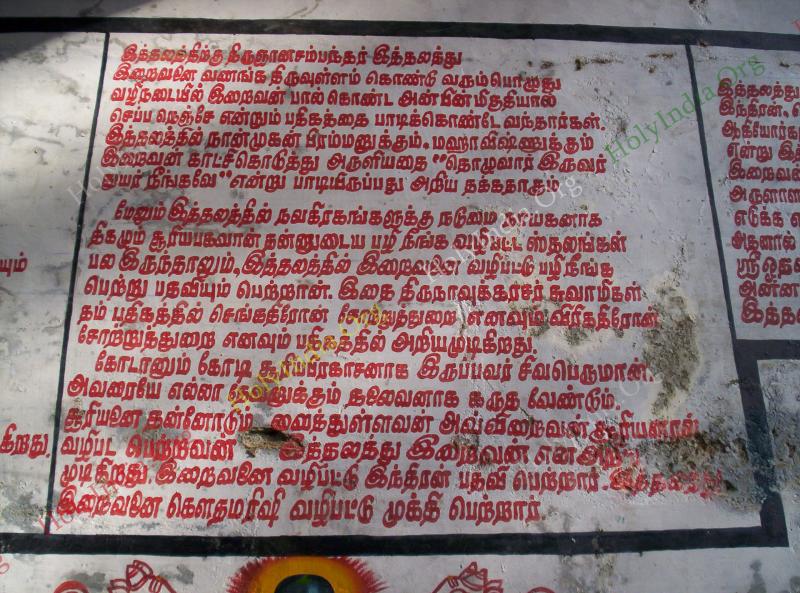 இத்தலத்திற்கு திருஞானசம்பந்தர் இத்தலத்து
இறைவனை வணங்க திருவுள்ளம் கொண்டு வரும்பொழுது
வழிநடையில் இறைவன் பால் கொண்ட அன்பின் மிகுதியால்
செப்ப நெஞ்சே என்னும் பதிகத்தை பாடிக்கொண்டே வந்தார்கள்.
இத்தலத்தில் நான்முகன் பிரம்மனுக்கும், மஹாவிஷ்ணுக்கும்
இறைவன் காட்சிகொடுத்து அருளியதை "தொழுவார் இருவர்
துயர் நீங்கவே" என்று பாடியிருப்பது அறிய தக்கதாகும்
மேலும் இத்தலத்தில் நவகிரகங்களுக்கு நடுமை நாயகனாக
திகழும் சூரியபகவான் தன்னுடைய பழி நீங்க வழிபட்ட ஸ்தலங்கள்
பல இருந்தாலும், இத்தலத்தில் இறைவனை வழிபட்டு பழிநீங்க
பெற்று பதவியும் பெற்றான். இதை திருநாவுக்கரசர் சுவாமிகள்
தம் பதிகத்தில் செங்கதிரோன் சோற்றுத்துறை எனவும் விரிகதிரோன்
சோற்றுத்துறை எனவும் பதிகத்தில் அறியமுடிகிறது.
கோடானும் கோடி சூரியபிரகாசனாக இருப்பவர் சிவபெருமான்.
அவரையே எல்லா தலைவனாக கருத வேண்டும்.
சூரியனை தன்னோடும் வைத்துள்ளவன் அவ்விறைவன் சூரியனால்
வழிபட பெற்றவன் இத்தலத்து இறைவன் என அறிய
முடிகிறது. இறைவனை வழிபட்டு இந்திரன் பதவி பெற்றார். இத்தலத்து
இறைவனை கௌதமரிஷி வழிபட்டு முக்தி பெற்றார்
யும்
கிறது.
இத்தலத்து
இந்திரன்,
ஆகியோர்
என்று இத
இறைவன்
அருளான
எடுக்க
அதனால்
ஸ்ரீஒத
அன்ன
இத்தல
HolyIndia.Org